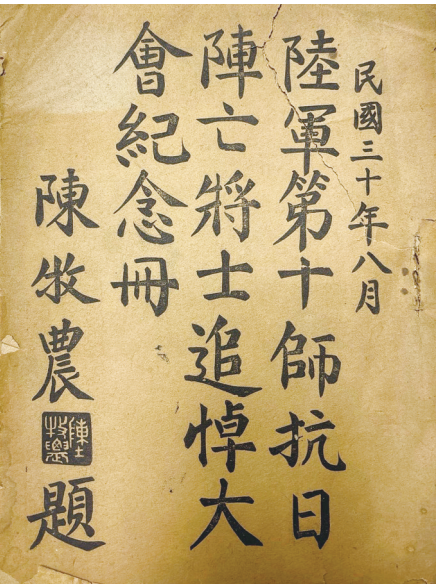 民國三十年八月
陸軍第十師抗日
陣亡將士追悼大
會紀念冊
陳牧農題
陳牧農